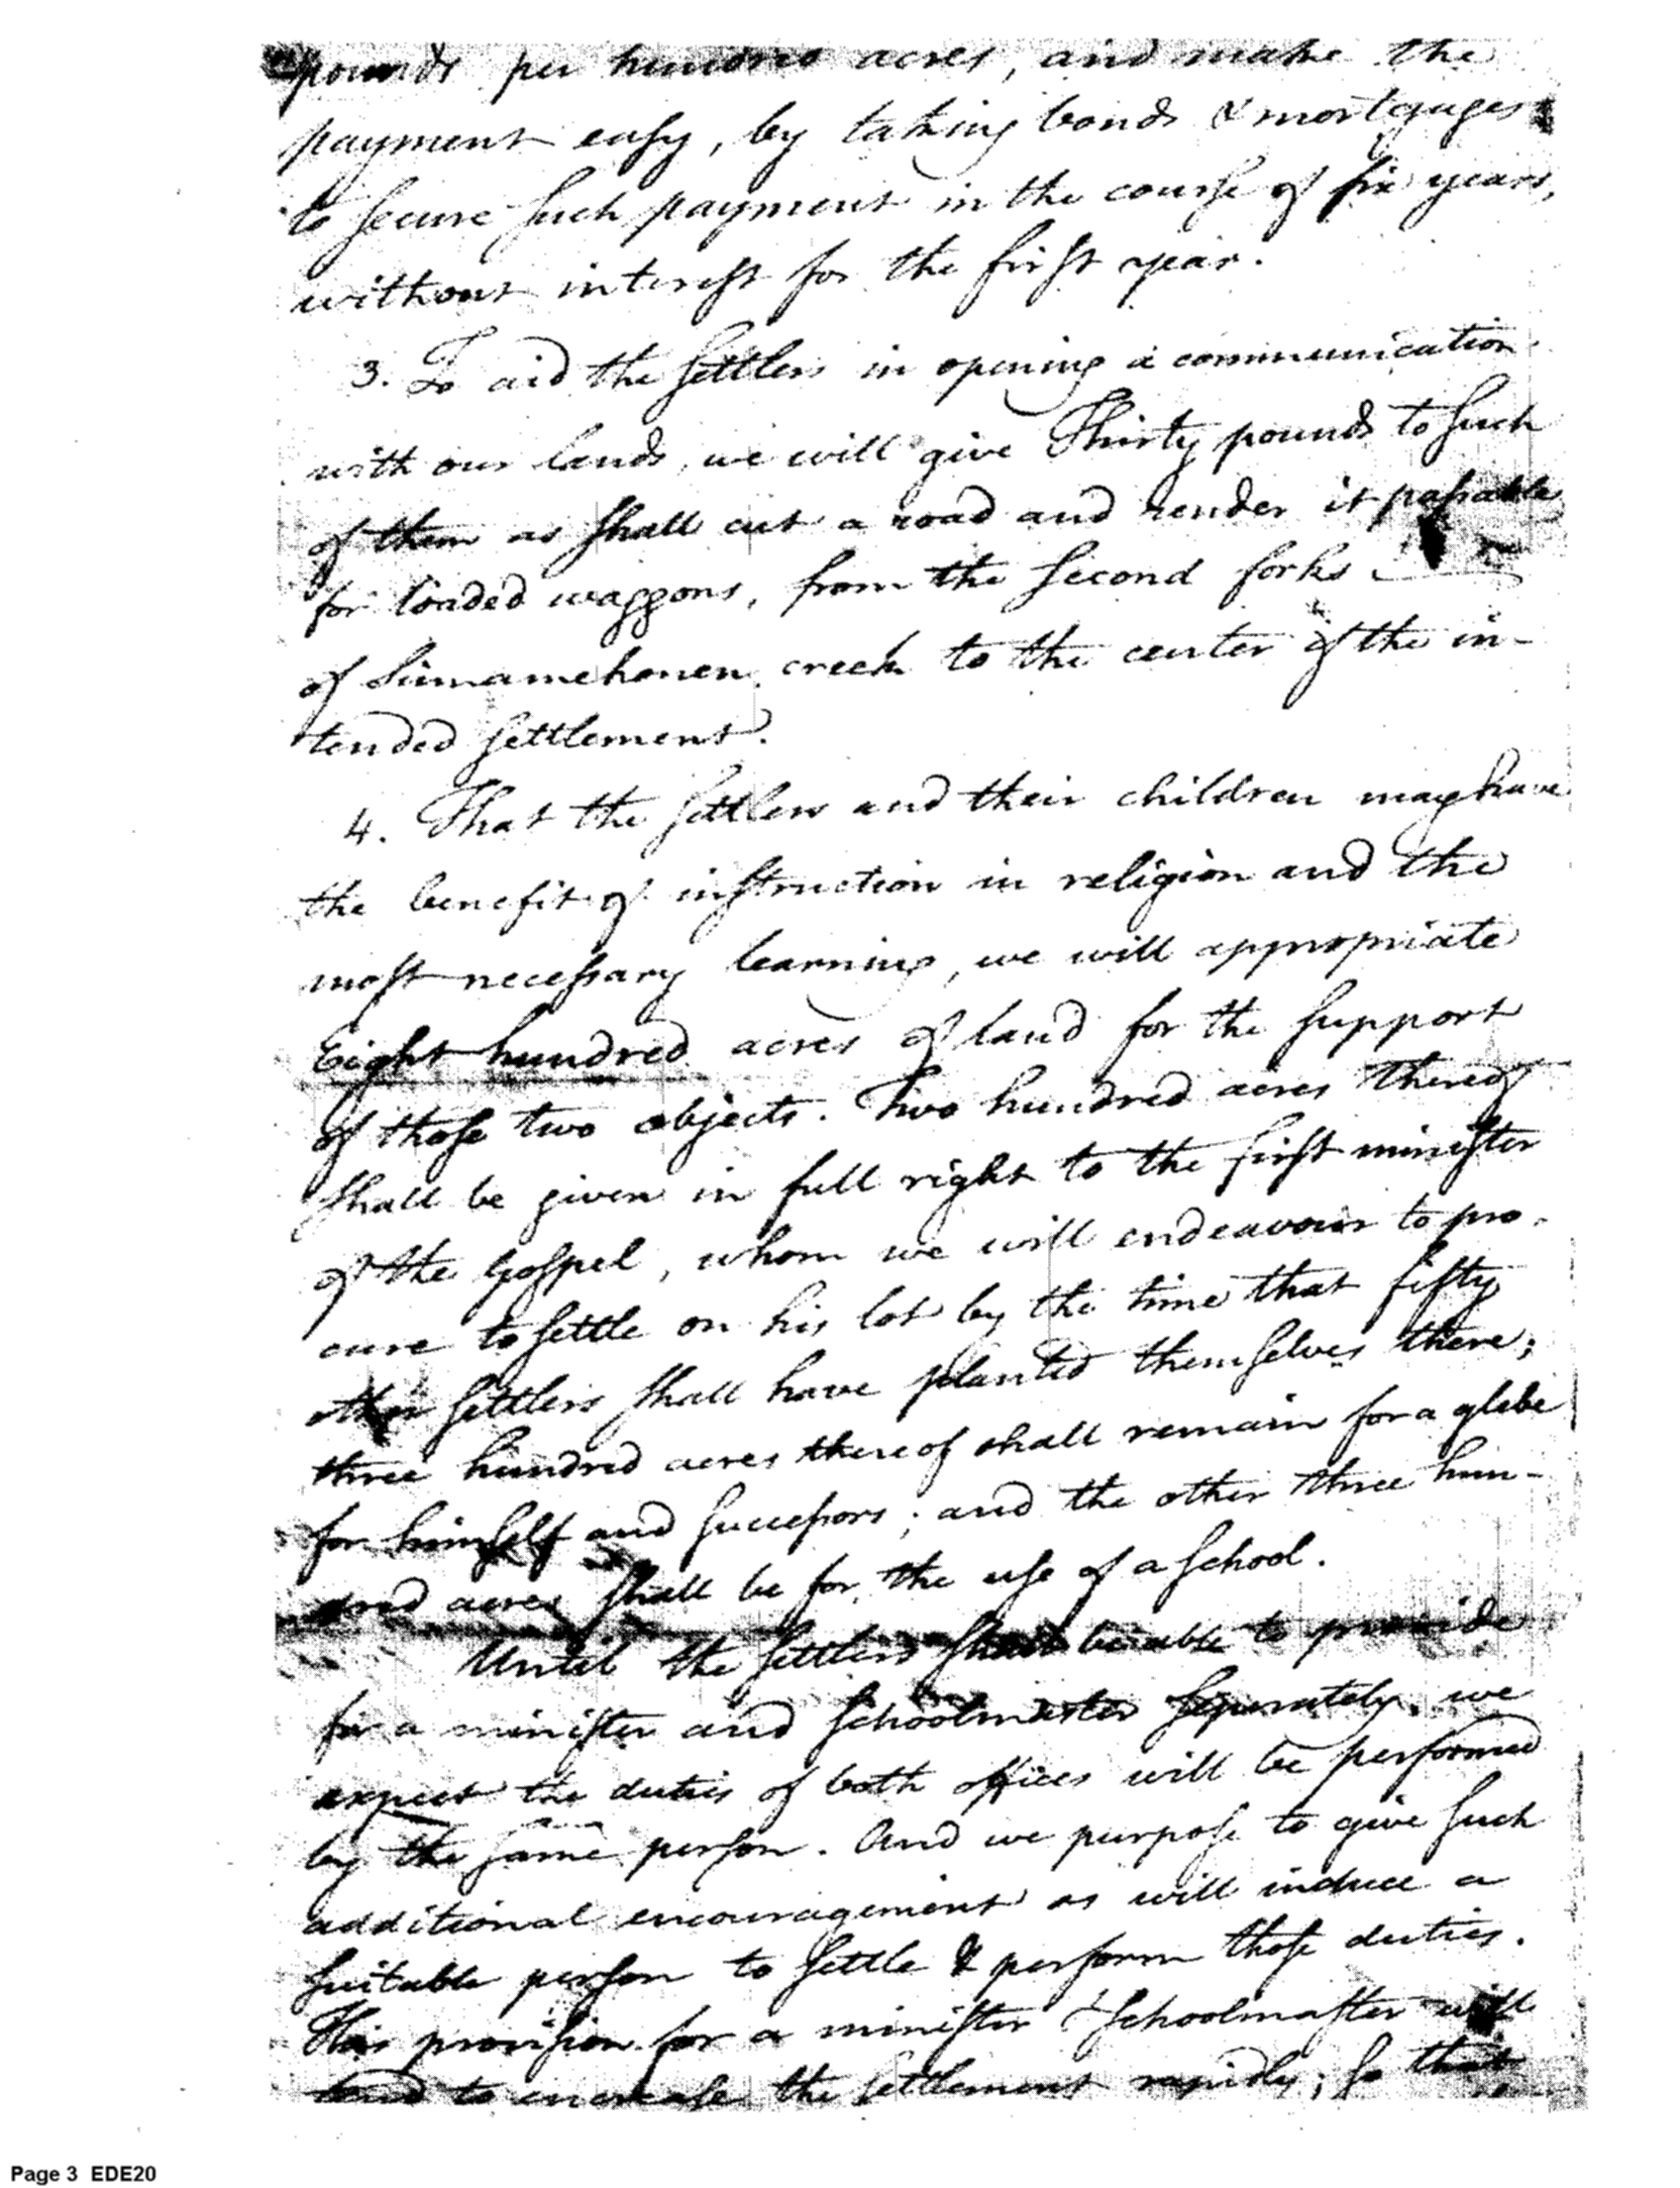 pounds per hundred acres, and make the
payment easy, by taking bonds & mortgages
to secure such payment in the course of six years,
without interest for the first year.
3. To aid the settlers in opening a communication
with our lands, we will give Thirty pounds to such
of them as shall cut a road and render it passable
for loaded waggons, from the second forks
of Sinnamehonen creek to the center of the in-
tended settlement.
4. That the settlers and their children may have
the benefit of instruction in religion and the
most necessary learning, we will appropriate
Eight hundred acres of land for the support
of those two objects. Two hundred acres thereof
shall be given in full right to the first minister
of the Gospel, whom we will endeavour to pro-
cure to settle on his lot by the time that fifty
other settlers shall have planted themselves there;
three hundred acres thereof shall remain for a glebe
for himself and successors; and the other three hun-
dred acres shall be for the use of a school.
Until the settlers shall be able to provide
for a minister and schoolmaster separately, we
expect the duties of both offices will be performed
by the same person. And we purpose to give such
additional encouragement as will induce a
suitable person to settle & perform those duties.
This provision for a minister & schoolmaster will
tend to encrease the settlement rapidly; so that
Page 3 EDE20